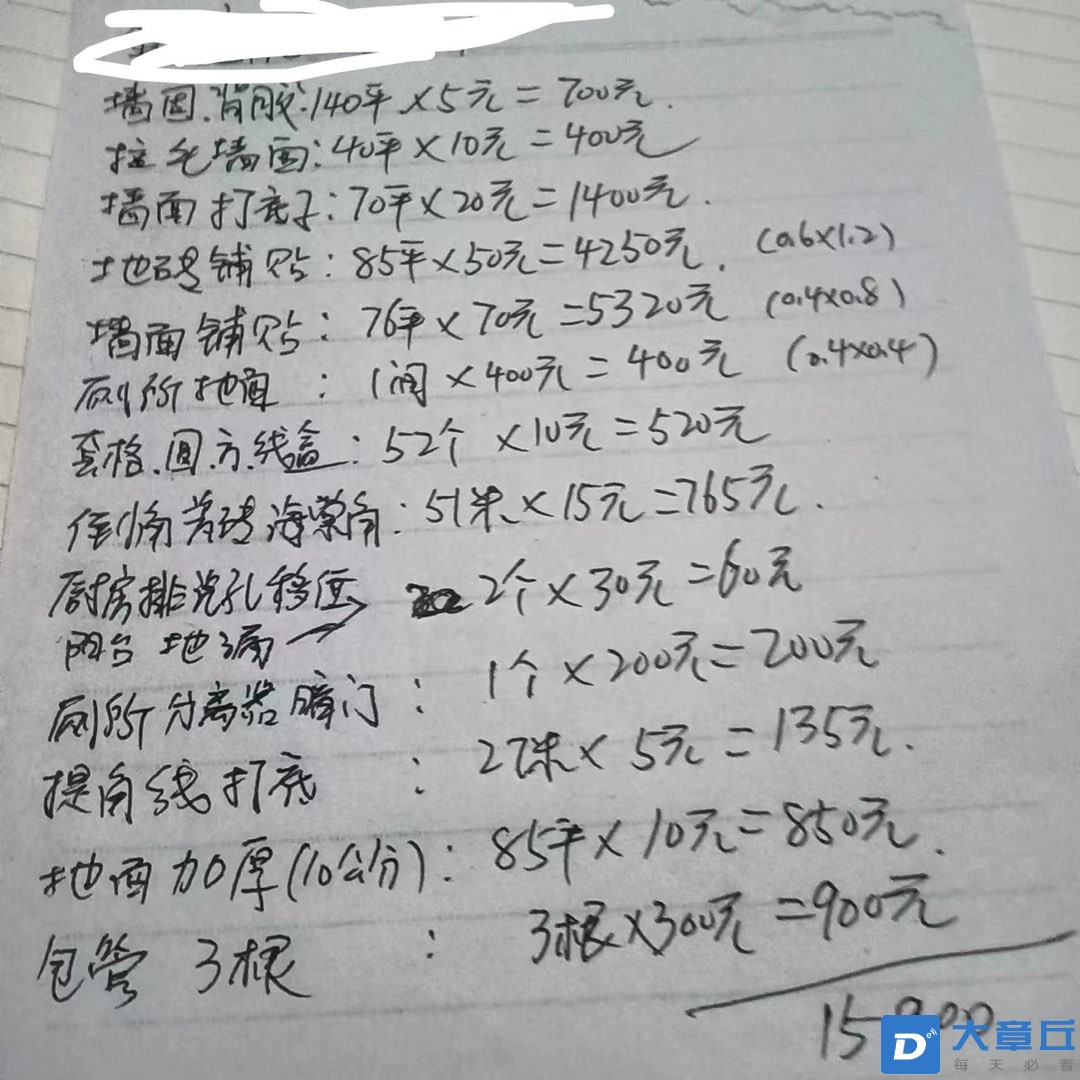 墙固.背胶:140平×5元=700元.
拉毛墙面:40平×10元=400元
墙面打底子:70平×20元=1400元.
地砖铺贴:85平×50元=4250元. (0.6×1.2)
墙面铺贴:76平×70元=5320元 (0.4×0.8)
厕所地面:1间×400元=400元 (0.4×0.4)
套格.圆.方.线盒:52个×10元=520元
海棠角:51米×15元=765元.
厨房排污孔移位 2个×30元=60元
阳台地漏
厕所分离器暗门:1个×200元=200元
提角线打底:27米×5元=135元.
地面加厚(10公分):85平×10元=850元.
包管3根:3根×300元=900元
15900
大章丘
每天必看